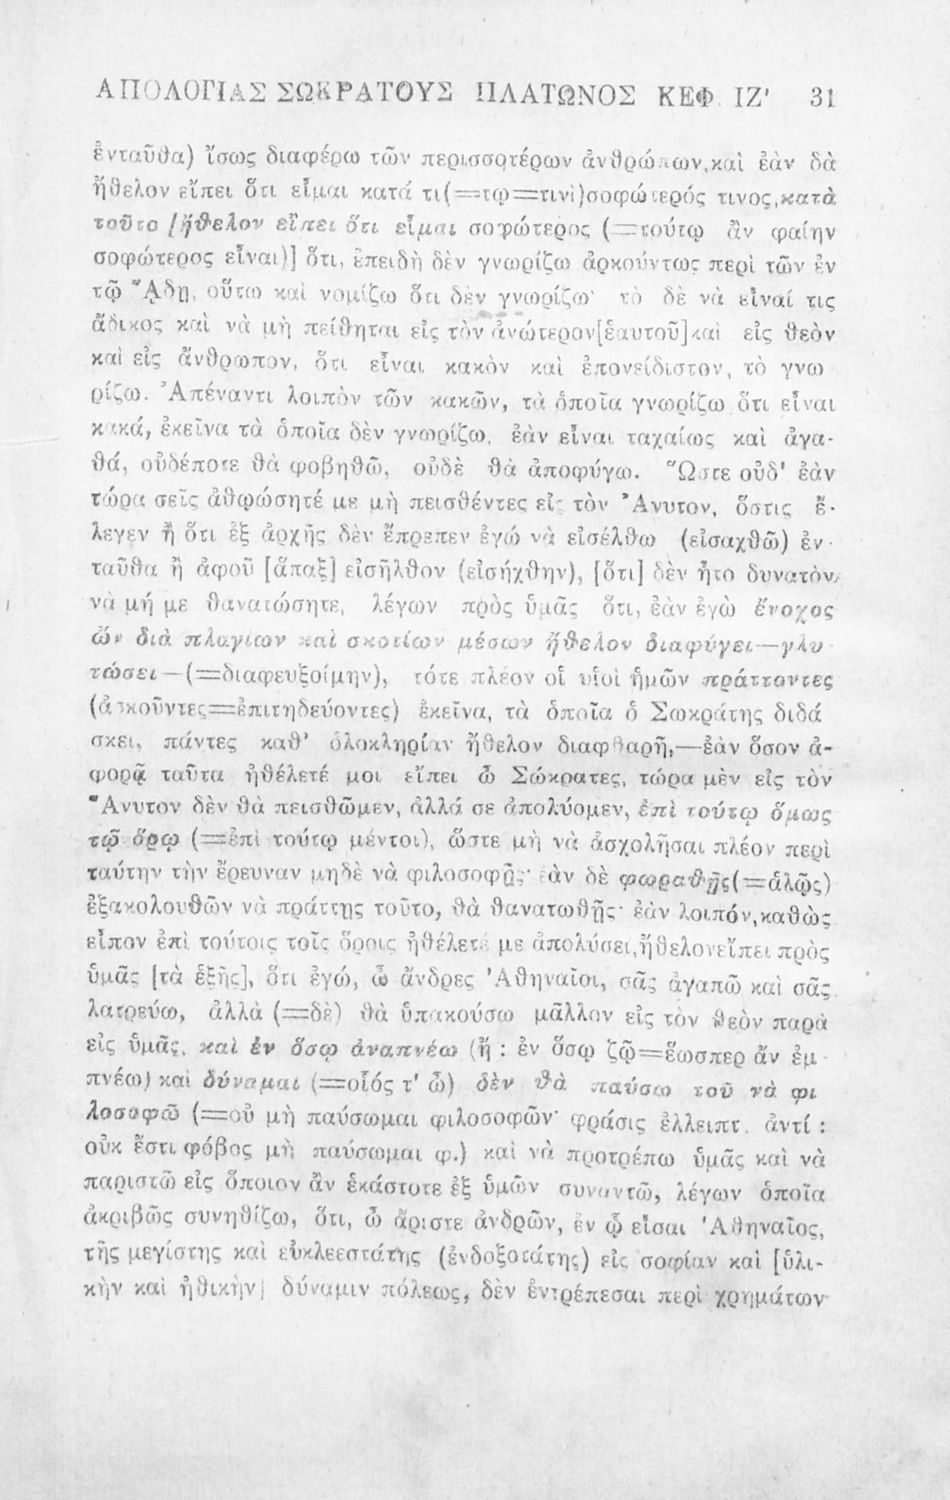 ΑΠΟΛΟΓΙΑΣ ΣΩΚΡΑΤΟΥΣ ΠΛΑΤΩΝΟΣ ΚΕΦ. ΙΖ' 31
ἐνταῦθα) ἴσως διαφέρω τῶν περισσοτέρων ἀνθρώπων, καὶ ἐὰν δὰ
ἤθελον εἴπει ὅτι εἶμαι κατά τι(=τῳ=τινὶ)σοφώτερός τινος, κατὰ
τοῦτο [ἤθελον εἴπει ὅτι εἶμαι σοφώτερος (=τούτῳ ἂν φαίην
σοφώτερος εἶναι)] ὅτι, ἐπειδὴ δὲν γνωρίζω ἀρκούντως περὶ τῶν ἐν
τῷ ῎ᾼδῃ, οὕτω καὶ νομίζω ὅτι δὲν γνωρίζω· τὸ δὲ νὰ εἶναί τις
ἄδικος καὶ νὰ μὴ πείθηται εἰς τὸν ἀνώτερον[ἑαυτοῦ]καὶ εἰς θεὸν
καὶ εἰς ἄνθρωπον, ὅτι εἶναι κακὸν καὶ ἐπονείδιστον, τὸ γνω
ρίζω. Ἀπέναντι λοιπὸν τῶν κακῶν, τὰ ὁποῖα γνωρίζω ὅτι εἶναι
κακά, ἐκεῖνα τὰ ὁποῖα δὲν γνωρίζω, ἐὰν εἶναι ταχαίως καὶ ἀγα-
θά, οὐδέποτε θὰ φοβηθῶ, οὐδὲ θὰ ἀποφύγω. Ὥστε οὐδ' ἐὰν
τώρα σεῖς ἀθῳώσητέ με μὴ πεισθέντες εἰς τὸν Ἄνυτον, ὅστις ἔ-
λεγεν ἢ ὅτι ἐξ ἀρχῆς δὲν ἔπρεπεν ἐγώ νὰ εἰσέλθω (εἰσαχθῶ) ἐν-
ταῦθα ἢ ἀφοῦ [ἅπαξ] εἰσῆλθον (εἰσήχθην), [ὅτι] δὲν ἦτο δυνατὸν,
νὰ μή με θανατώσητε, λέγων πρὸς ὑμᾶς ὅτι, ἐὰν ἐγὼ ἔνοχος
ὢν διὰ πλαγίων καὶ σκοτίων μέσων ἤθελον διαφύγει—γλυ
τώσει—(=διαφευξοίμην), τότε πλέον οἱ υἱοὶ ἡμῶν πράττοντες
(ἀσκοῦντες=ἐπιτηδεύοντες) ἐκεῖνα, τὰ ὁποῖα ὁ Σωκράτης διδά
σκει, πάντες καθ' ὁλοκληρίαν ἤθελον διαφθαρῆ,—ἐὰν ὅσον ἀ-
φορᾷ ταῦτα ἠθέλετέ μοι εἴπει ὦ Σώκρατες, τώρα μὲν εἰς τὸν
Ἄνυτον δὲν θὰ πεισθῶμεν, ἀλλά σε ἀπολύομεν, ἐπὶ τούτῳ ὅμως
τῷ ὅρῳ (=ἐπὶ τούτῳ μέντοι), ὥστε μὴ νὰ ἀσχολῆσαι πλέον περὶ
ταύτην τὴν ἔρευναν μηδὲ νὰ φιλοσοφῇς· ἐὰν δὲ φωραθῇς(=ἁλῷς)
ἐξακολουθῶν νὰ πράττῃς τοῦτο, θὰ θανατωθῇς· ἐὰν λοιπόν, καθὼς
εἶπον ἐπὶ τούτοις τοῖς ὅροις ἠθέλετέ με ἀπολύσει, ἤθελον εἴπει πρὸς
ὑμᾶς [τὰ ἑξῆς], ὅτι ἐγώ, ὦ ἄνδρες Ἀθηναῖοι, σᾶς ἀγαπῶ καὶ σᾶς
λατρεύω, ἀλλὰ (=δὲ) θὰ ὑπακούσω μᾶλλον εἰς τὸν θεὸν παρὰ
εἰς ὑμᾶς, καὶ ἐν ὅσῳ ἀναπνέω (ἢ : ἐν ὅσῳ ζῶ=ἕωσπερ ἂν ἐμ-
πνέω) καὶ δύναμαι (=οἷός τ' ὦ) δὲν θὰ παύσω τοῦ νὰ φι
λοσοφῶ (=οὐ μὴ παύσωμαι φιλοσοφῶν· φράσις ἐλλειπτ. ἀντί :
οὐκ ἔστι φόβος μὴ παύσωμαι φ.) καὶ νὰ προτρέπω ὑμᾶς καὶ νὰ
παριστῶ εἰς ὅποιον ἂν ἑκάστοτε ἐξ ὑμῶν συναντῶ, λέγων ὁποῖα
ἀκριβῶς συνηθίζω, ὅτι, ὦ ἄριστε ἀνδρῶν, ἐν ᾧ εἶσαι Ἀθηναῖος,
τῆς μεγίστης καὶ εὐκλεεστάτης (ἐνδοξοτάτης) εἰς σοφίαν καὶ [ὑλι-
κὴν καὶ ἠθικὴν] δύναμιν πόλεως, δὲν ἐντρέπεσαι περὶ χρημάτων